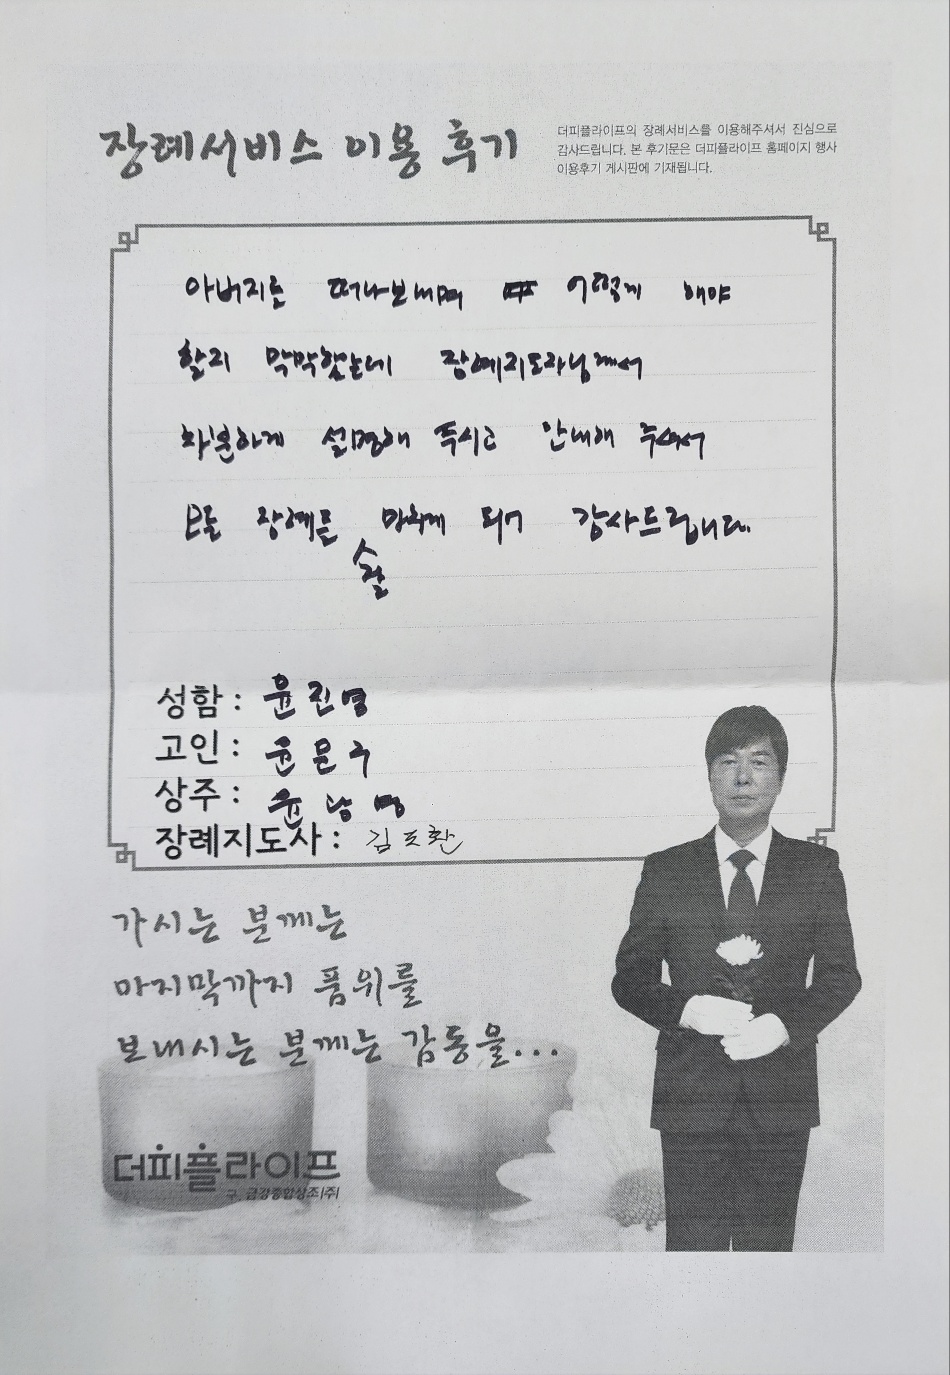 장례서비스 이용 후기
더피플라이프의 장례서비스를 이용해주셔서 진심으로
감사드립니다. 본 후기문은 더피플라이프 홈페이지 행사
이용후기 게시판에 기재됩니다.
아버지를 떠나보내며 어떻게 해야
할지 막막했는데 장례지도사님께서
차분하게 설명해 주시고 안내해 주셔서
장례를 되어 감사드립니다.
성함 : 윤진영
고인 : 윤문구
상주 : 윤남영
장례지도사 : 김도환
가시는 분께는
마지막까지 품위를
보내시는 분께는 감동을...
더피플라이프
구. 금강종합상조(주)